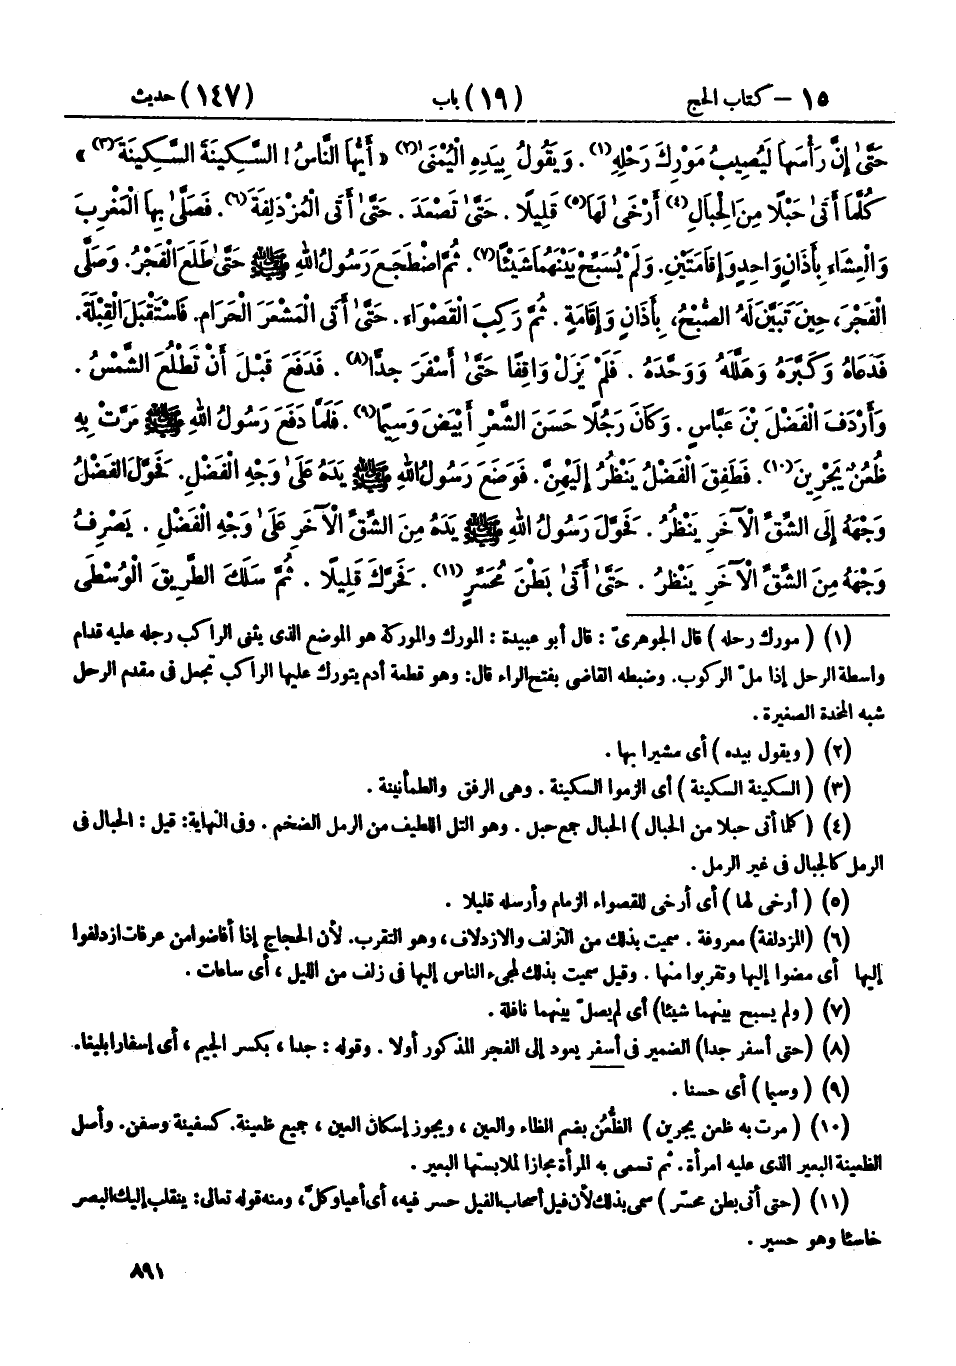 ١٥ – كتاب الحج (١٩) باب (١٤٧) حديث
حَتَّىٰ إِنَّ رَأْسَهَا لَيُصِيبُ مَوْرِكَ رَحْلِهِ(١) . وَيَقُولُ بِيَدِهِ الْيُمْنَى(٢) «أَيُّهَا النَّاسُ! السَّكِينَةَ السَّكِينَةَ(٣)»
كُلَّمَا أَتَىٰ حَبْلًا مِنَ الْحِبَالِ(٤) أَرْخَىٰ لَهَا(٥) قَلِيلًا . حَتَّىٰ تَصْعَدَ . حَتَّىٰ أَتَى الْمُزْدَلِفَةَ(٦). فَصَلَّىٰ بِهَا الْمَغْرِبَ
وَالْعِشَاءَ بِأَذَانٍ وَاحِدٍ وَإِقَامَتَيْنِ. وَلَمْ يُسَبِّحْ بَيْنَهُمَا شَيْئًا(٧). ثُمَّ اضْطَجَعَ رَسُولُ اللهِ ﷺ حَتَّىٰ طَلَعَ الْفَجْرُ. وَصَلَّى
الْفَجْرَ، حِينَ تَبَيَّنَ لَهُ الصُّبْحُ، بِأَذَانٍ وَإِقَامَةٍ . ثُمَّ رَكِبَ الْقَصْوَاءَ . حَتَّىٰ أَتَى الْمَشْعَرَ الْحَرَامَ. فَاسْتَقْبَلَ الْقِبْلَةَ.
فَدَعَاهُ وَكَبَّرَهُ وَهَلَّلَهُ وَوَحَّدَهُ . فَلَمْ يَزَلْ وَاقِفًا حَتَّىٰ أَسْفَرَ جِدًّا(٨) . فَدَفَعَ قَبْلَ أَنْ تَطْلُعَ الشَّمْسُ .
وَأَرْدَفَ الْفَضْلَ بْنَ عَبَّاسٍ . وَكَانَ رَجُلًا حَسَنَ الشَّعْرِ أَبْيَضَ وَسِيمًا(٩). فَلَمَّا دَفَعَ رَسُولُ اللهِ ﷺ مَرَّتْ بِهِ
ظُعُنٌ يَجْرِينَ(١٠). فَطَفِقَ الْفَضْلُ يَنْظُرُ إِلَيْهِنَّ . فَوَضَعَ رَسُولُ اللهِ ﷺ يَدَهُ عَلَىٰ وَجْهِ الْفَضْلِ. فَحَوَّلَ الْفَضْلُ
وَجْهَهُ إِلَى الشِّقِّ الْآخَرِ يَنْظُرُ . فَحَوَّلَ رَسُولُ اللهِ ﷺ يَدَهُ مِنَ الشِّقِّ الْآخَرِ عَلَىٰ وَجْهِ الْفَضْلِ . يَصْرِفُ
وَجْهَهُ مِنَ الشِّقِّ الْآخَرِ يَنْظُرُ . حَتَّىٰ أَتَىٰ بَطْنَ مُحَسِّرٍ(١١) . فَحَرَّكَ قَلِيلًا . ثُمَّ سَلَكَ الطَّرِيقَ الْوُسْطَى
(١) (مورك رحله) قال الجوهرىّ : قال أبو عبيدة : المورك والموركة هو الموضع الذى يثنى الراكب رجله عليه قدام
واسطة الرحل إذا ملّ الركوب. وضبطه القاضى بفتح الراء قال: وهو قطعة أدم يتورك عليها الراكب تجعل فى مقدم الرحل
شبه المخدة الصغيرة .
(٢) (ويقول بيده) أى مشيرا بها .
(٣) (السكينة السكينة) أى الزموا السكينة . وهى الرفق والطمأنينة .
(٤) (كلما أتى حبلا من الحبال) الحبال جمع حبل . وهو التل اللطيف من الرمل الضخم . وفى النهاية: قيل : الحبال فى
الرمل كالجبال فى غير الرمل .
(٥) (أرخى لها) أى أرخى للقصواء الزمام وأرسله قليلا .
(٦) (المزدلفة) معروفة . سميت بذلك من التزلف والازدلاف، وهو التقرب. لأن الحجاج إذا أفاضوا من عرفات ازدلفوا
إليها أى مضوا إليها وتقربوا منها . وقيل سميت بذلك لمجىء الناس إليها فى زلف من الليل ، أى ساعات .
(٧) (ولم يسبح بينهما شيئا) أى لم يصلّ بينهما نافلة .
(٨) (حتى أسفر جدا) الضمير فى أسفر يعود إلى الفجر المذكور أولا . وقوله : جدا ، بكسر الجيم ، أى إسفارا بليغا.
(٩) (وسيما) أى حسنا .
(١٠) (مرت به ظعن يجرين) الظُّعُن بضم الظاء والعين ، ويجوز إسكان العين ، جميع ظعينة. كسفينة وسفن. وأصل
الظعينة البعير الذى عليه امرأة . ثم تسمى به المرأة مجازا لملابستها البعير .
(١١) (حتى أتى بطن محسّر) سمى بذلك لأن فيل أصحاب الفيل حسر فيه، أى أعيا وكلّ، ومنه قوله تعالى: ينقلب إليك البصر
خاسئا وهو حسير .
٨٩١